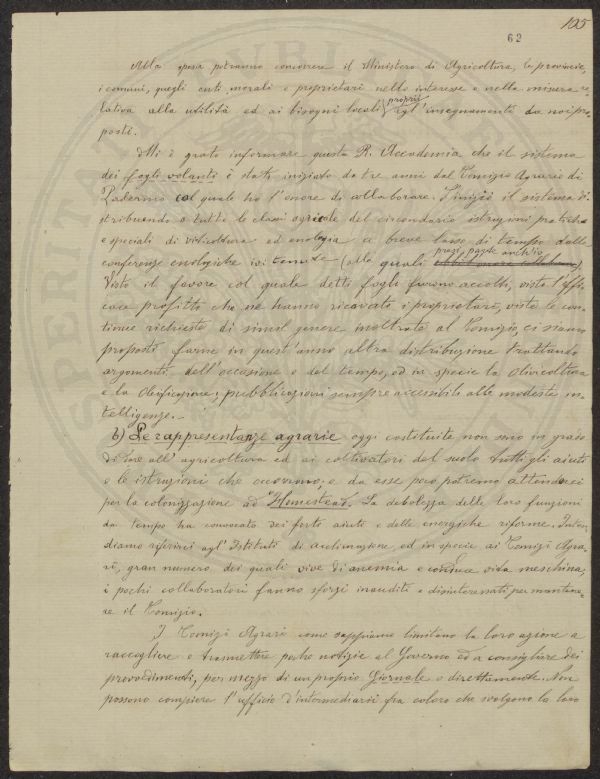 195
62
Alla spesa potranno concorrere il Ministero di Agricoltura, le provincie,
i comuni, quegli enti morali e proprietari nello interesse e nella misura re-
lativa alla utilità ed ai bisogni locali proprii agl'insegnamenti da noi pro-
posti.
Mi è grato informare questa R. Accademia che il sistema
dei fogli volanti è stato iniziato da tre anni dal Comizio Agrario di
Palermo col quale ho l'onore di collaborare. S'iniziò il sistema di-
stribuendo a tutte le classi agricole del circondario istruzioni pratiche
e speciali di viticoltura ed enologia a breve lasso di tempo dalle
conferenze enologiche ivi tenute (alle quali presi parte anch'io).
Visto il favore col quale detti fogli furono accolti, visto l'effi-
cace profitto che ne hanno ricavato i proprietari, viste le con-
tinue richieste di simil genere inoltrate al Comizio, ci siamo
proposti farne in quest'anno altra distribuzione trattando
argomenti dell'occasione e del tempo, ed in specie la Olivicoltura
e la Oleificazione; pubblicazioni sempre accessibili alle modeste in-
telligenze.-
b) Le rappresentanze agrarie oggi costituite non sono in grado
di dare all'agricoltura ed ai coltivatori del suolo tutti gli aiuti
e le istruzioni che occorrono; e da esse poco potremo attenderci
per la colonizzazione ad Homestead. La debolezza delle loro funzioni
da tempo ha invocato dei forti aiuti e delle energiche riforme. Inten-
diamo riferirci agl'Istituti di acclimazione ed in specie ai Comizi Agra-
rî, gran numero dei quali vive di anemia e conduce vita meschina;
i pochi collaboratori fanno sforzi inauditi e disinteressati per mantene-
re il Comizio.
I Comizi Agrari come sappiamo limitano la loro azione a
raccogliere e trasmettere poche notizie al Governo ed a consigliare dei
provvedimenti, per mezzo di un proprio Giornale o direttamente. Non
possono compiere l'ufficio d'intermediarii fra coloro che svolgono la loro